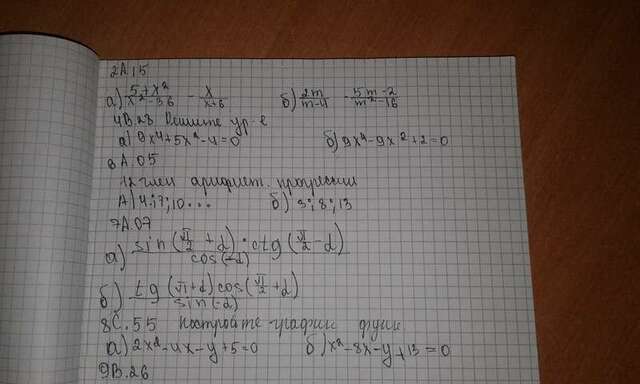 2A15
а) 5+x² / x²-36 - x / x-6   б) 2m / m-4 - 5m-2 / m²-16
4В23 Решите ур-е
а) 9x4+5x²-4=0   б) 9x⁴-9x²+2=0
6А05
1к член арифмет. прогрессии
А) 4;7;10...   б) 3;8;13
7А07
а) sin(π/2+d)·ctg(π/2-d) / cos(-d)
б) tg(π-d)cos(π/2+d) / sin(-d)
8С55 Постройте график функ
а) 2x²-4x-y+5=0   б) x²-8x-y+13=0
9В26